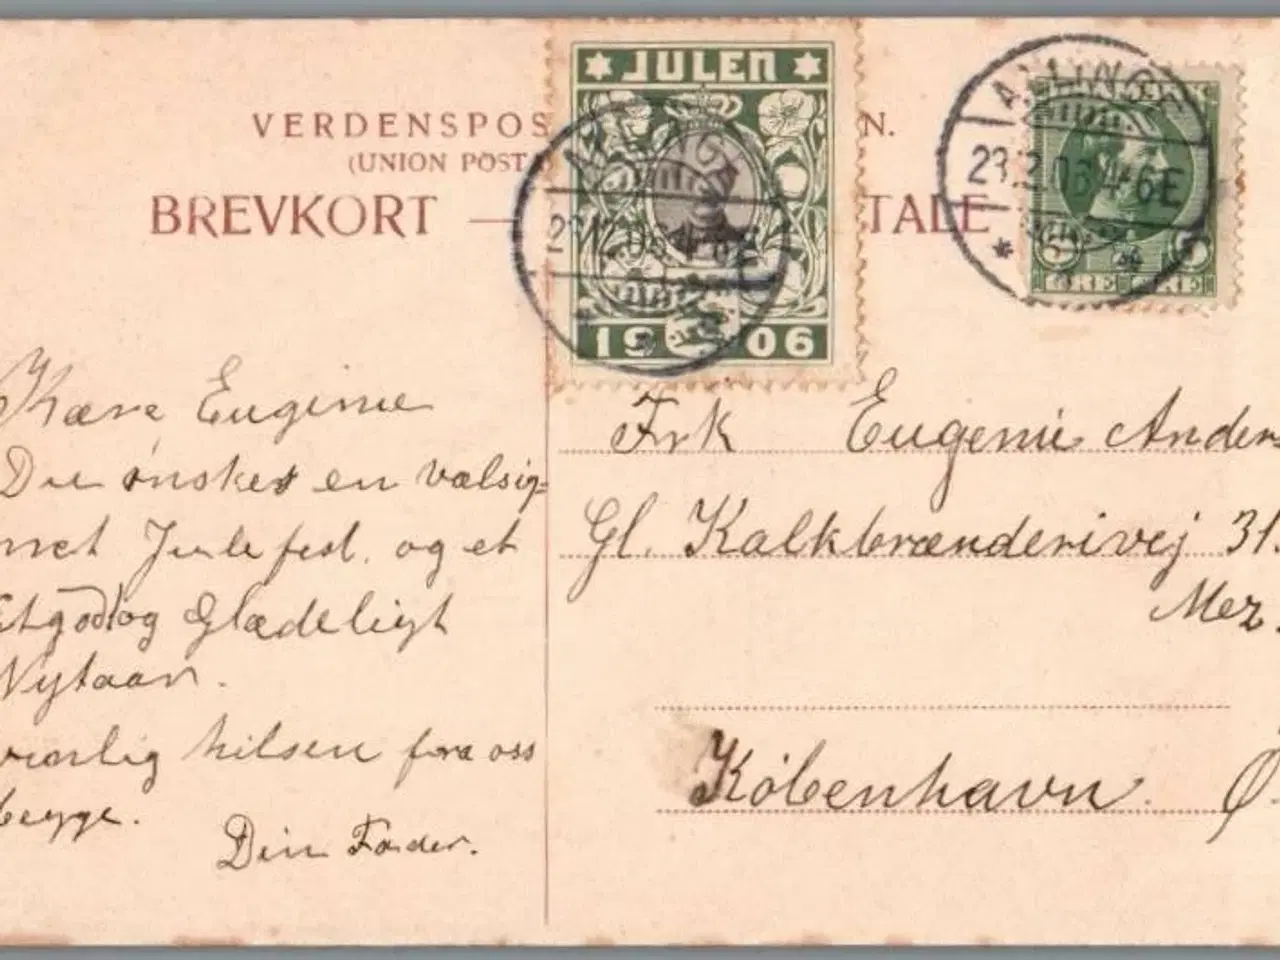 VERDENSPOS N.
(UNION POST
BREVKORT — TALE
JULEN
1906
ALLINGE
23.12.06 4-6E
ALLINGE
23.12.06 4-6E
DANMARK
5 5
ØRE ØRE
Kære Eugenie
Du ønskes en velsig=
net Julefest. og et
Etgodtog Glædeligt
Nytaar.
kærlig hilsen fra oss
begge.
Din Fader.
Frk Eugenie Anders
Gl. Kalkbrænderivej 31.
Mez.
København Ø.